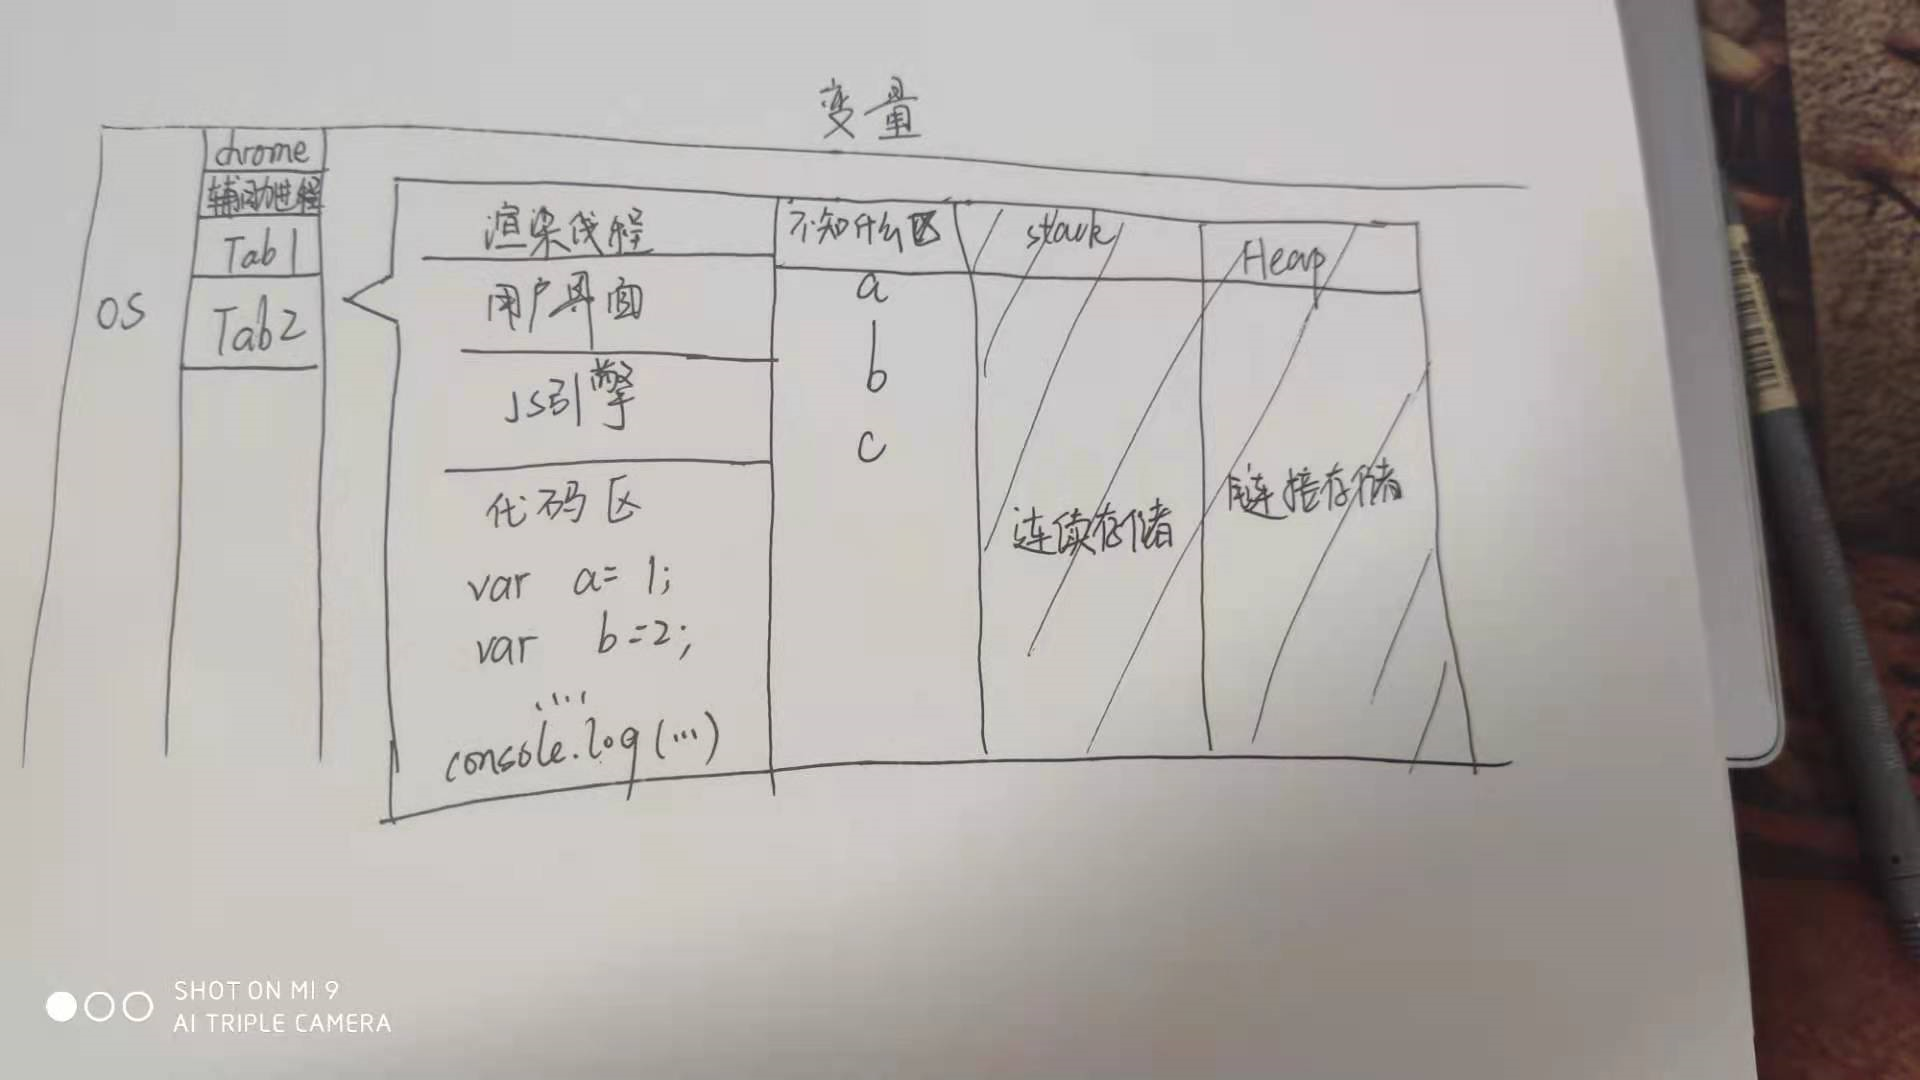 变量
OS
chrome
辅助进程
Tab1
Tab2
渲染线程
用户界面
JS引擎
代码区
var a= 1;
var b=2;
....
console.log(...)
不知什么区
a
b
c
stack
连续存储
Heap
链接存储
SHOT ON MI 9
AI TRIPLE CAMERA